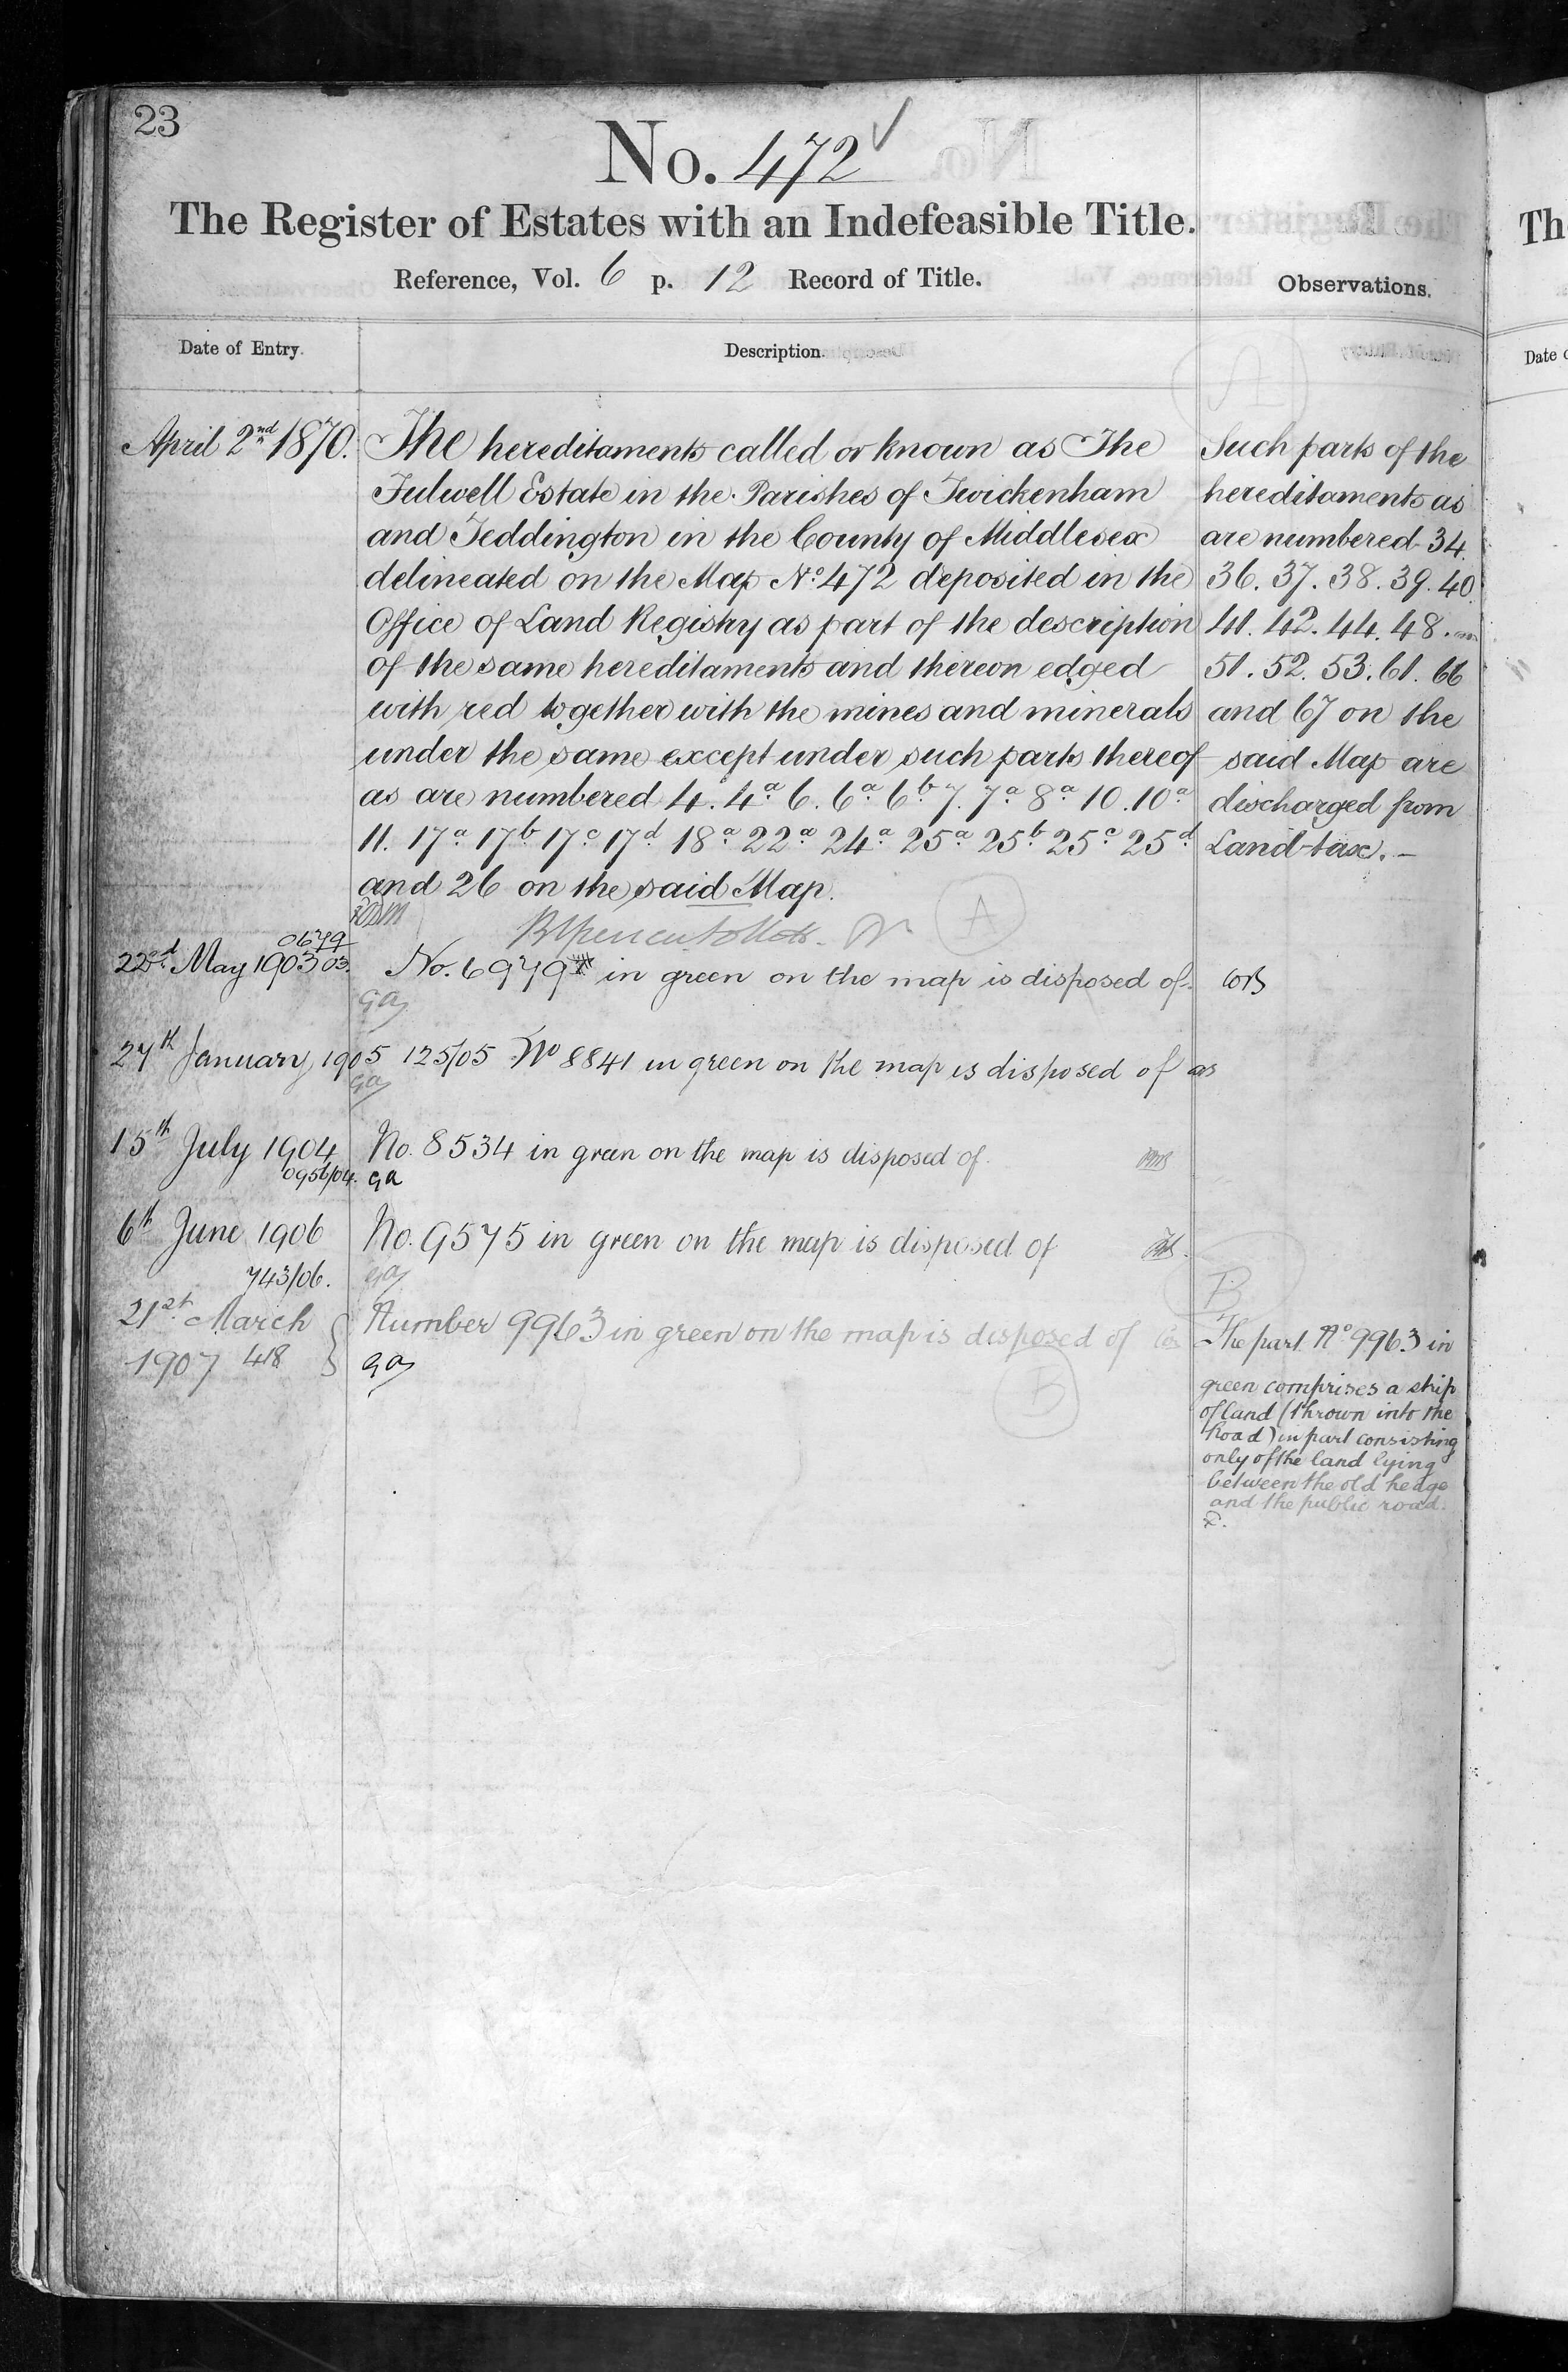 23
No. 472
The Register of Estates with an Indefeasible Title.
Reference, Vol. 6 p. 12 Record of Title.
Observations.
Date of Entry.
Description.
April 2nd 1870.
The hereditaments called or known as The
Fulwell Estate in the Parishes of Twickenham
and Teddington in the County of Middlesex
delineated on the Map No. 472 deposited in the
Office of Land Registry as part of the description
of the same hereditaments and thereon edged
with red together with the mines and minerals
under the same except under such parts thereof
as are numbered 4. 4a 6. 6a 6b 7. 7a 8a 10. 10a
11. 17a 17b 17c 17d 18a 22a 24a 25a 25b 25c 25d
and 26 on the said Map.
Such parts of the
hereditaments as
are numbered 34
36. 37. 38. 39. 40.
41. 42. 44. 48.
51. 52. 53. 61. 66
and 67 on the
said Map are
discharged from
Land-tax.
A
0679
22nd May 1903 03.
No. 6979 in green on the map is disposed of.
27th January 1905 125/05 No 8841 in green on the map is disposed of
15th July 1904
0956/04.
No. 8534 in green on the map is disposed of.
ga
6th June 1906
743/06.
No. 9575 in green on the map is disposed of
ga
21st March
1907 418
Number 9963 in green on the map is disposed of
ga
B
B
The part No 9963 in
green comprises a strip
of land (thrown into the
Road) in part consisting
only of the land lying
between the old hedge
and the public road.
Th
Date